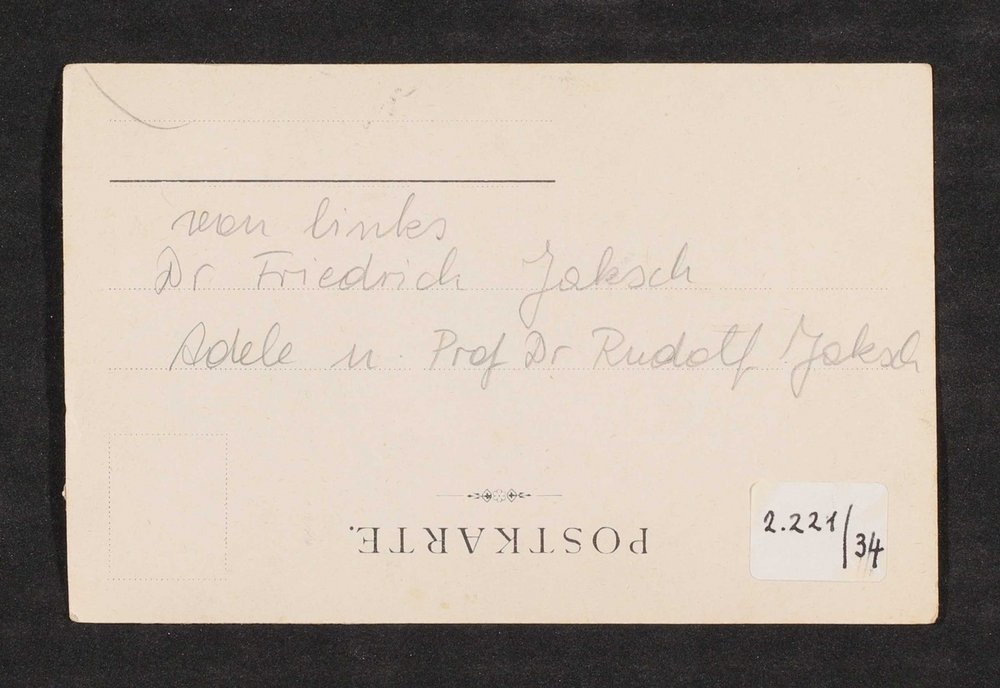 von links
Dr Friedrich Jaksch
Adele u. Prof Dr Rudolf Jaksch
POSTKARTE.
2.221/34